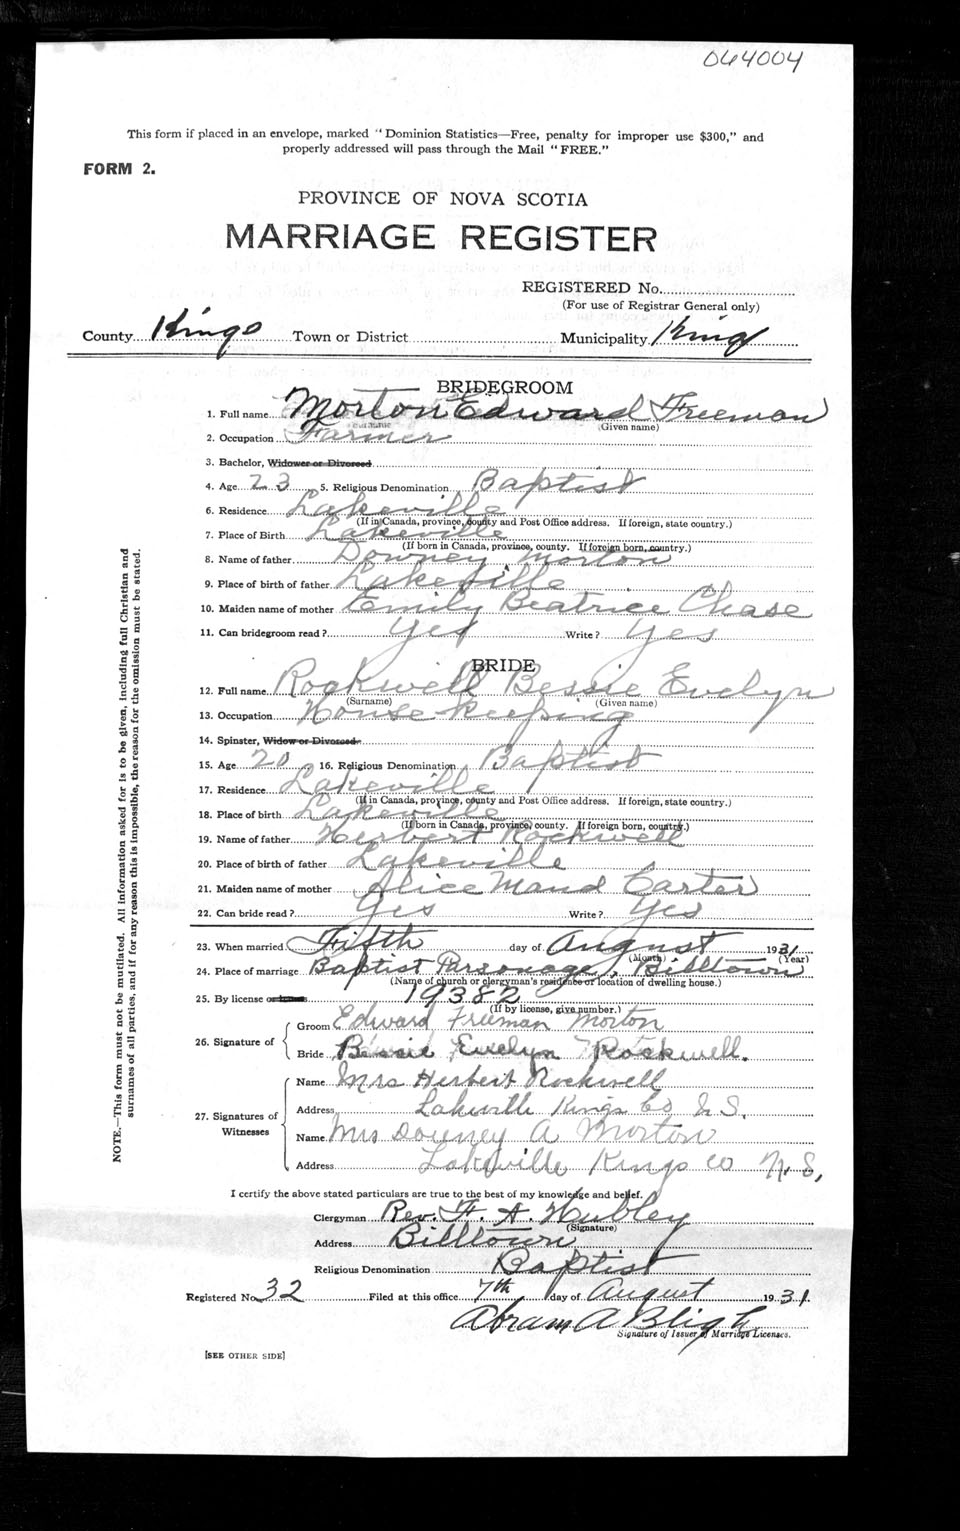 064004
This form if placed in an envelope, marked "Dominion Statistics—Free, penalty for improper use $300," and
properly addressed will pass through the Mail "FREE."
FORM 2.
PROVINCE OF NOVA SCOTIA
MARRIAGE REGISTER
REGISTERED No.
(For use of Registrar General only)
County Kings Town or District Municipality Kings
BRIDEGROOM
1. Full name Morton Edward Freeman
(Surname) (Given name)
2. Occupation Farmer
3. Bachelor, Widower or Divorced
4. Age 23 5. Religious Denomination Baptist
6. Residence Lakeville
(If in Canada, province, county and Post Office address. If foreign, state country.)
7. Place of Birth Lakeville
(If born in Canada, province, county. If foreign born, country.)
8. Name of father Downey Morton
9. Place of birth of father Lakeville
10. Maiden name of mother Emily Beatrice Chase
11. Can bridegroom read? Yes Write? Yes
BRIDE
12. Full name Rockwell Bessie Evelyn
(Surname) (Given name)
13. Occupation Housekeeping
14. Spinster, Widow or Divorced
15. Age 20 16. Religious Denomination Baptist
17. Residence Lakeville
(If in Canada, province, county and Post Office address. If foreign, state country.)
18. Place of birth Lakeville
(If born in Canada, province, county. If foreign born, country.)
19. Name of father Herbert Rockwell
20. Place of birth of father Lakeville
21. Maiden name of mother Alice Maud Carter
22. Can bride read? Yes Write? Yes
23. When married Fifth day of August 1931
(Month) (Year)
24. Place of marriage Baptist Parsonage, Billtown
(Name of church or clergyman's residence or location of dwelling house.)
25. By license or 19382
(If by license, give number.)
26. Signature of Groom Edward Freeman Morton
Bride Bessie Evelyn Rockwell.
27. Signatures of Witnesses Name Mrs Herbert Rockwell
Address Lakeville Kings Co N.S.
Name Mrs Downey A Morton
Address Lakeville Kings Co N.S.
I certify the above stated particulars are true to the best of my knowledge and belief.
Clergyman Rev. F. A. Hubley
(Signature)
Address Billtown
Religious Denomination Baptist
Registered No. 32 Filed at this office 7th day of August 1931.
Abram A Bligh
Signature of Issuer of Marriage Licenses.
[SEE OTHER SIDE]
NOTE.—This form must not be mutilated. All information asked for is to be given, including full Christian and
surnames of all parties, and if for any reason this is impossible, the reason for the omission must be stated.